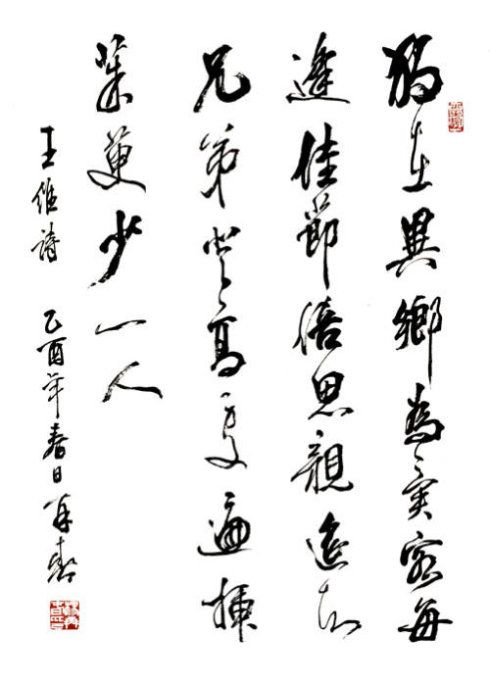 獨在異鄉為異客每
逢佳節倍思親遙知
兄弟登高處遍插
茱萸少一人
王維詩 乙酉年春日